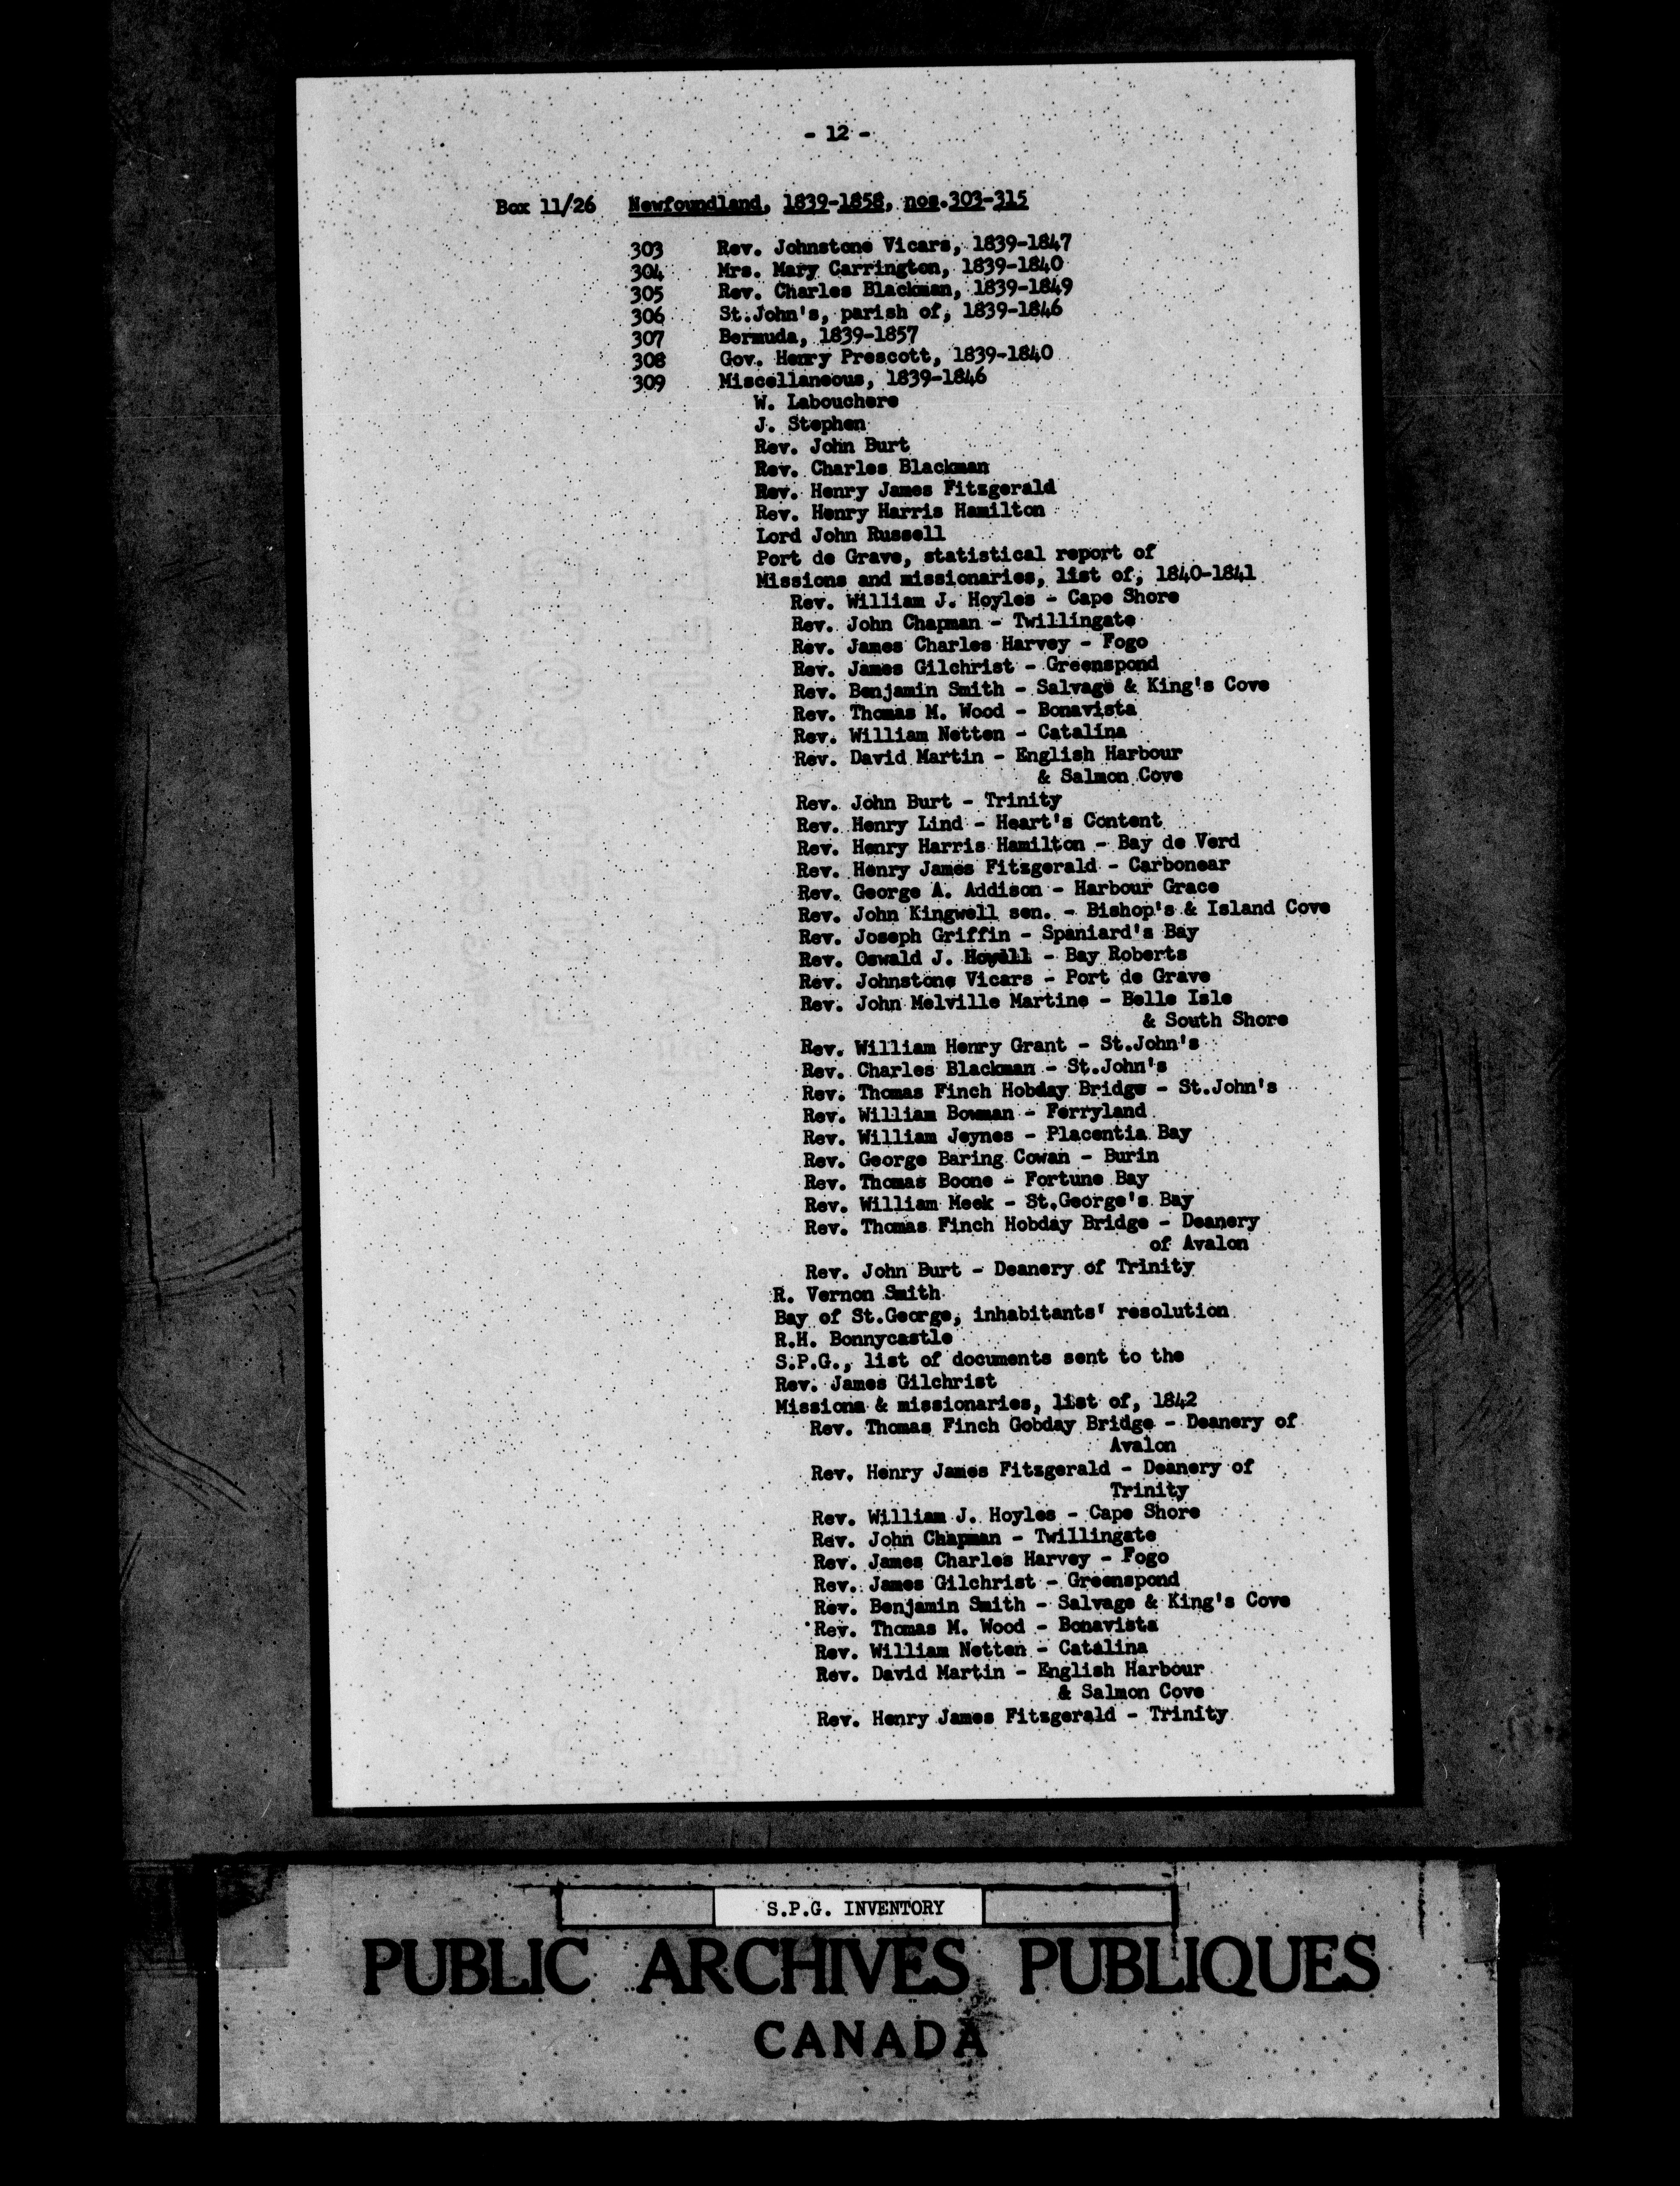 - 12 -
Box 11/26 Newfoundland, 1839-1858, nos.303-315
303 Rev. Johnstone Vicars, 1839-1847
304 Mrs. Mary Carrington, 1839-1840
305 Rev. Charles Blackman, 1839-1849
306 St.John's, parish of, 1839-1846
307 Bermuda, 1839-1857
308 Gov. Henry Prescott, 1839-1840
309 Miscellaneous, 1839-1846
W. Labouchere
J. Stephen
Rev. John Burt
Rev. Charles Blackman
Rev. Henry James Fitzgerald
Rev. Henry Harris Hamilton
Lord John Russell
Port de Grave, statistical report of
Missions and missionaries, list of, 1840-1841
Rev. William J. Hoyles - Cape Shore
Rev. John Chapman - Twillingate
Rev. James Charles Harvey - Fogo
Rev. James Gilchrist - Greenspond
Rev. Benjamin Smith - Salvage & King's Cove
Rev. Thomas M. Wood - Bonavista
Rev. William Netten - Catalina
Rev. David Martin - English Harbour
& Salmon Cove
Rev. John Burt - Trinity
Rev. Henry Lind - Heart's Content
Rev. Henry Harris Hamilton - Bay de Verd
Rev. Henry James Fitzgerald - Carbonear
Rev. George A. Addison - Harbour Grace
Rev. John Kingwell sen. - Bishop's & Island Cove
Rev. Joseph Griffin - Spaniard's Bay
Rev. Oswald J. Howell - Bay Roberts
Rev. Johnstone Vicars - Port de Grave
Rev. John Melville Martine - Belle Isle
& South Shore
Rev. William Henry Grant - St.John's
Rev. Charles Blackman - St.John's
Rev. Thomas Finch Hobday Bridge - St.John's
Rev. William Bowman - Ferryland
Rev. William Jeynes - Placentia Bay
Rev. George Baring Cowan - Burin
Rev. Thomas Boone - Fortune Bay
Rev. William Meek - St.George's Bay
Rev. Thomas Finch Hobday Bridge - Deanery
of Avalon
Rev. John Burt - Deanery of Trinity
R. Vernon Smith
Bay of St.George, inhabitants' resolution
R.H. Bonnycastle
S.P.G., list of documents sent to the
Rev. James Gilchrist
Missions & missionaries, list of, 1842
Rev. Thomas Finch Gobday Bridge - Deanery of
Avalon
Rev. Henry James Fitzgerald - Deanery of
Trinity
Rev. William J. Hoyles - Cape Shore
Rev. John Chapman - Twillingate
Rev. James Charles Harvey - Fogo
Rev. James Gilchrist - Greenspond
Rev. Benjamin Smith - Salvage & King's Cove
Rev. Thomas M. Wood - Bonavista
Rev. William Netten - Catalina
Rev. David Martin - English Harbour
& Salmon Cove
Rev. Henry James Fitzgerald - Trinity
S.P.G. INVENTORY
PUBLIC ARCHIVES PUBLIQUES
CANADA